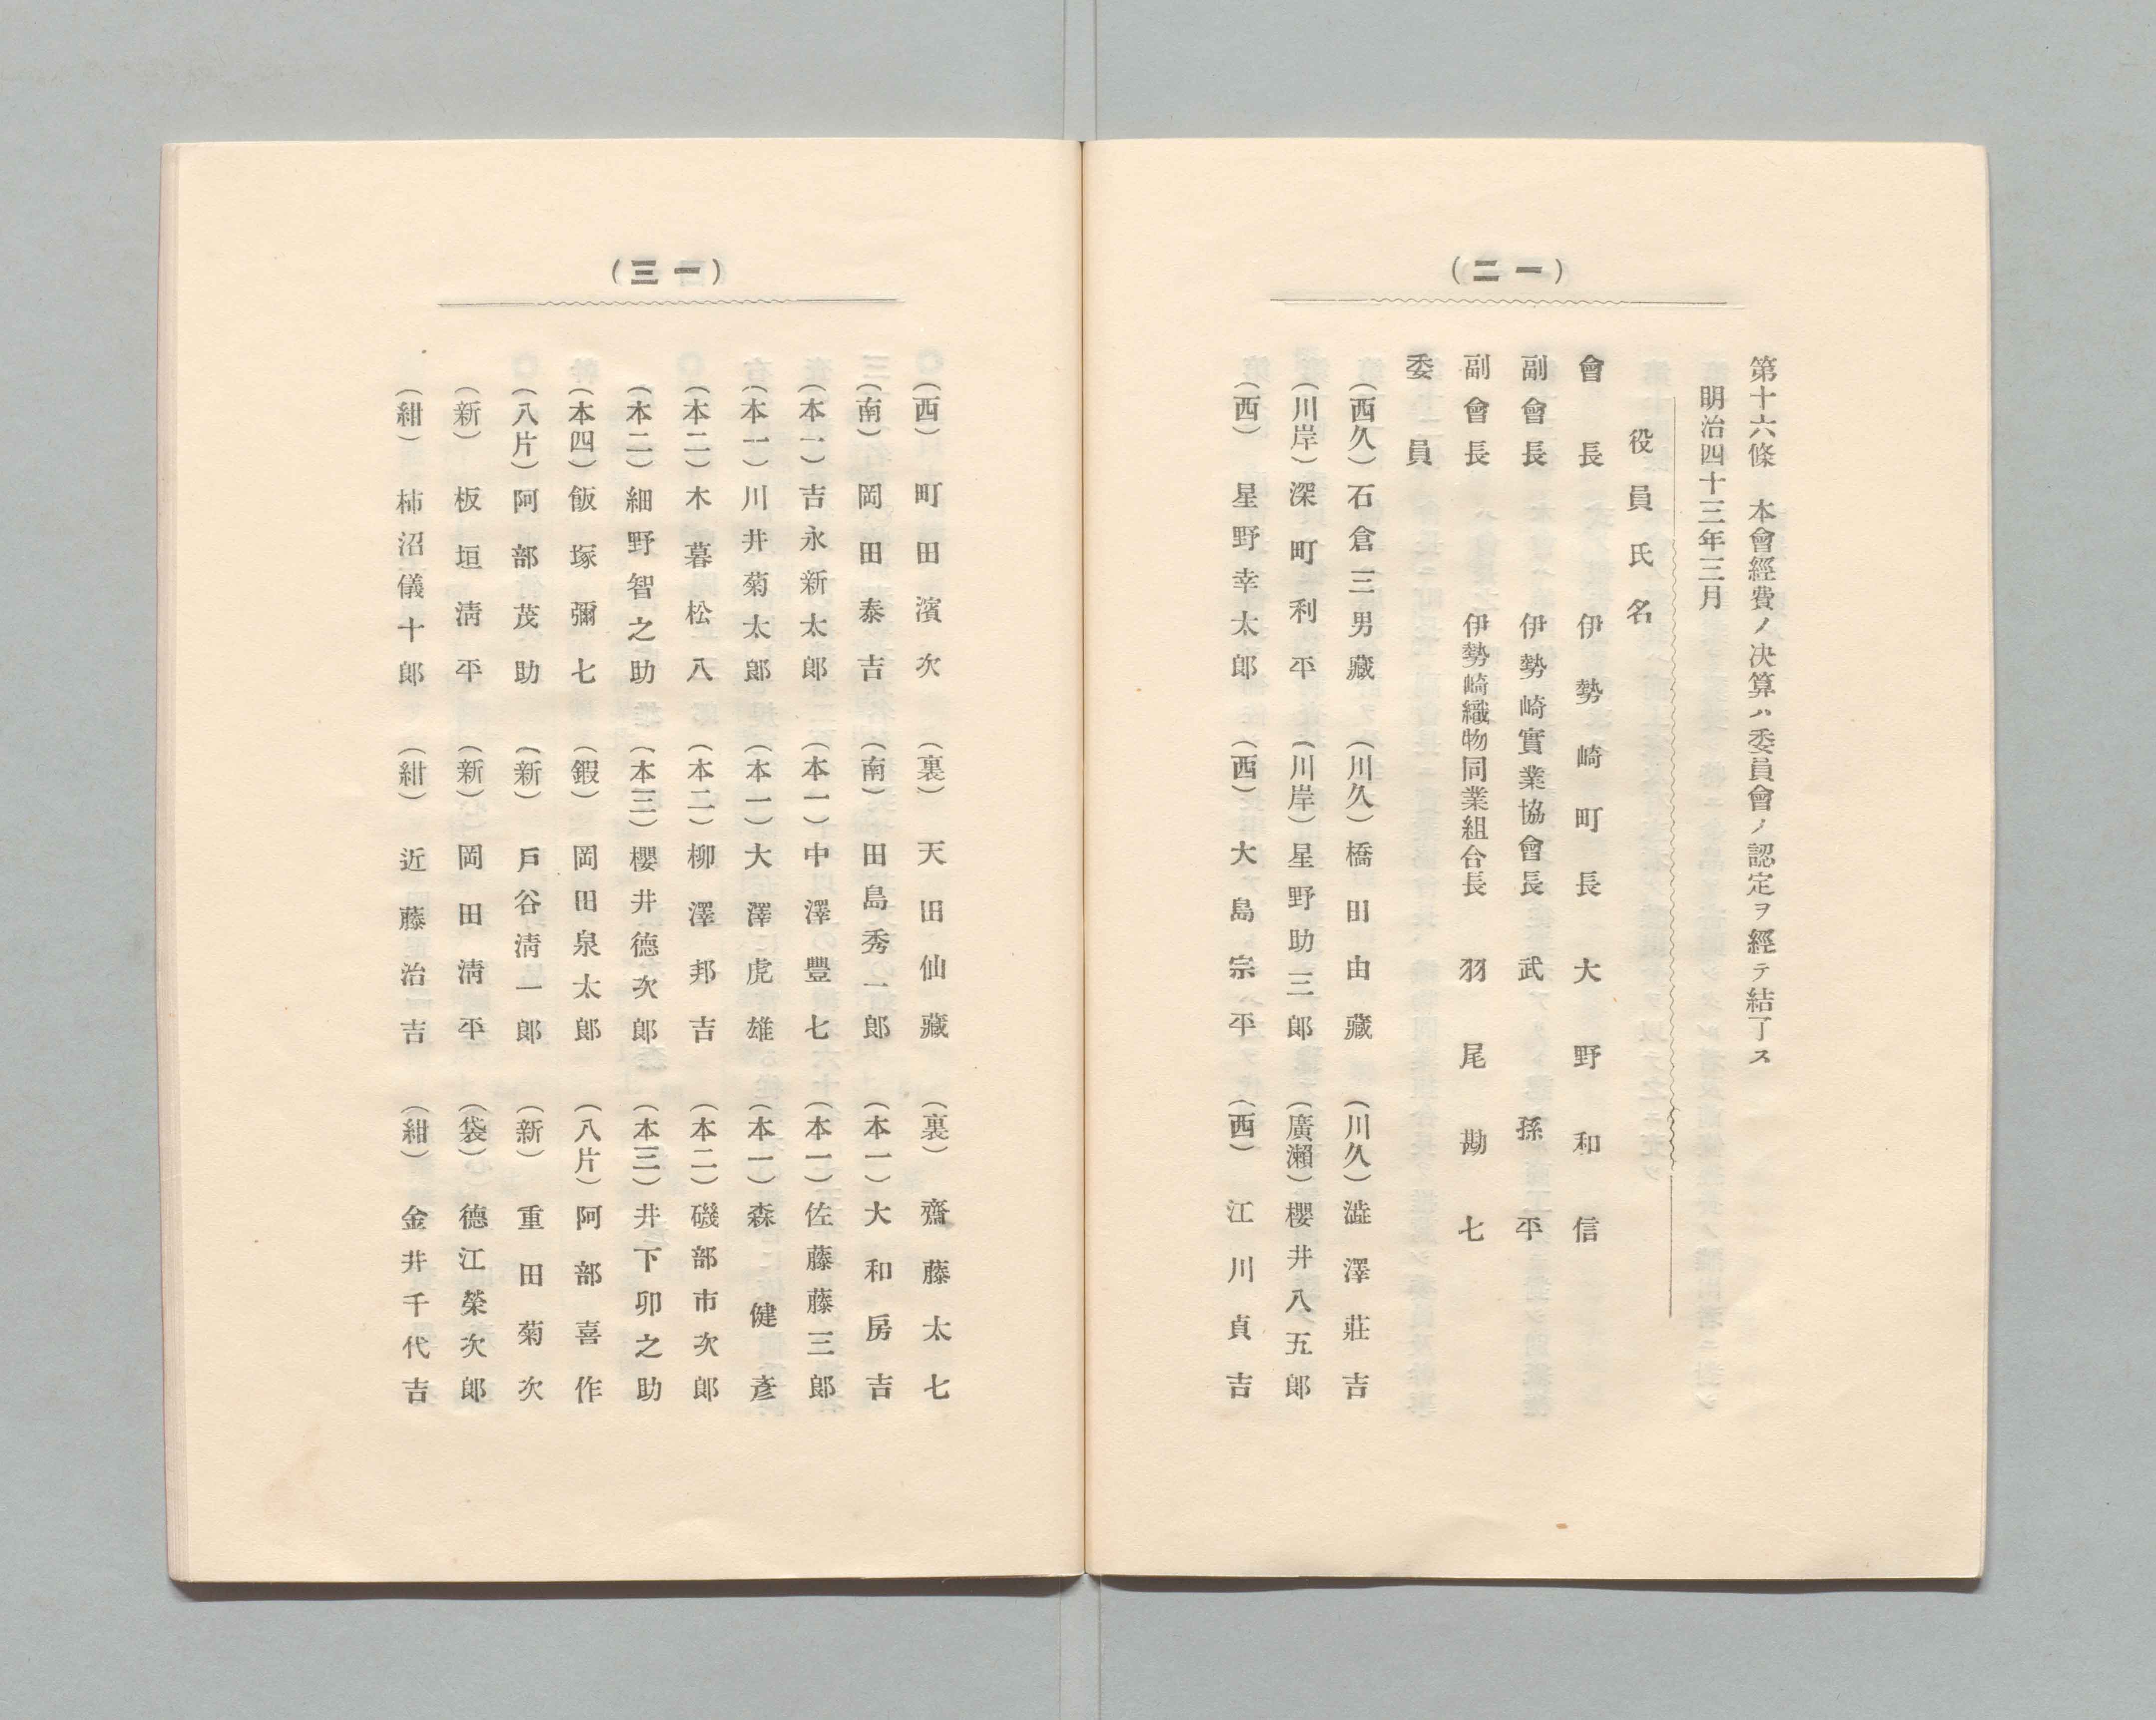 (二一)
第十六條 本會經費ノ决算ハ委員會ノ認定ヲ經テ結了ス
明治四十三年三月
役員氏名
會長 伊勢崎町長 大野和信
副會長 伊勢崎實業協會長 武孫平
副會長 伊勢崎織物同業組合長 羽尾勘七
委員
(西久)石倉三男藏 (川久)橋田由藏 (川久)澁澤莊吉
(川岸)深町利平 (川岸)星野助三郎 (廣瀨)櫻井八五郎
(西)星野幸太郎 (西)大島宗平 (西)江川貞吉
(三一)
(西)町田濱次 (裏)天田仙藏 (裏)齋藤太七
(南)岡田泰吉 (南)田島秀一郎 (本一)大和房吉
(本一)吉永新太郎 (本一)中澤豐七 (本一)佐藤藤三郎
(本一)川井菊太郎 (本一)大澤虎雄 (本一)森健彥
(本二)木暮松八 (本二)柳澤邦吉 (本二)磯部市次郎
(本二)細野智之助 (本三)櫻井德次郎 (本三)井下卯之助
(本四)飯塚彌七 (鍜)岡田泉太郎 (八片)阿部喜作
(八片)阿部茂助 (新)戶谷淸一郎 (新)重田菊次
(新)板垣淸平 (新)岡田淸平 (袋)德江榮次郎
(紺)柿沼儀十郎 (紺)近藤治吉 (紺)金井千代吉